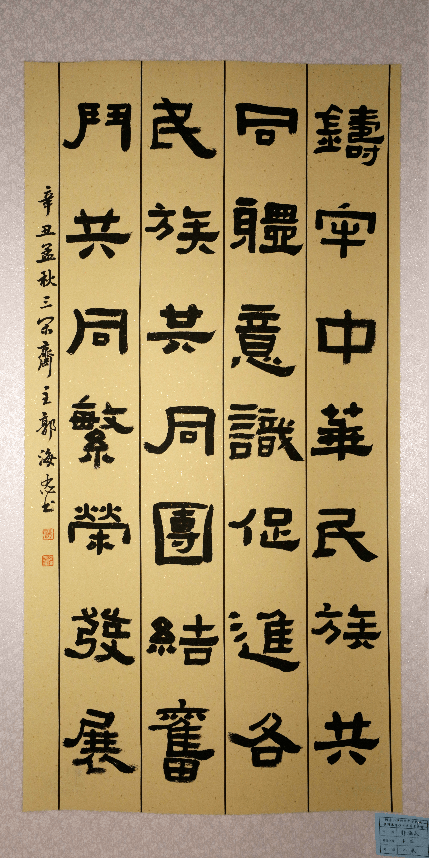 鑄牢中華民族共
同體意識促進各
民族共同團結奮
鬥共同繁榮發展
辛丑孟秋三宋齋主郭海忠书